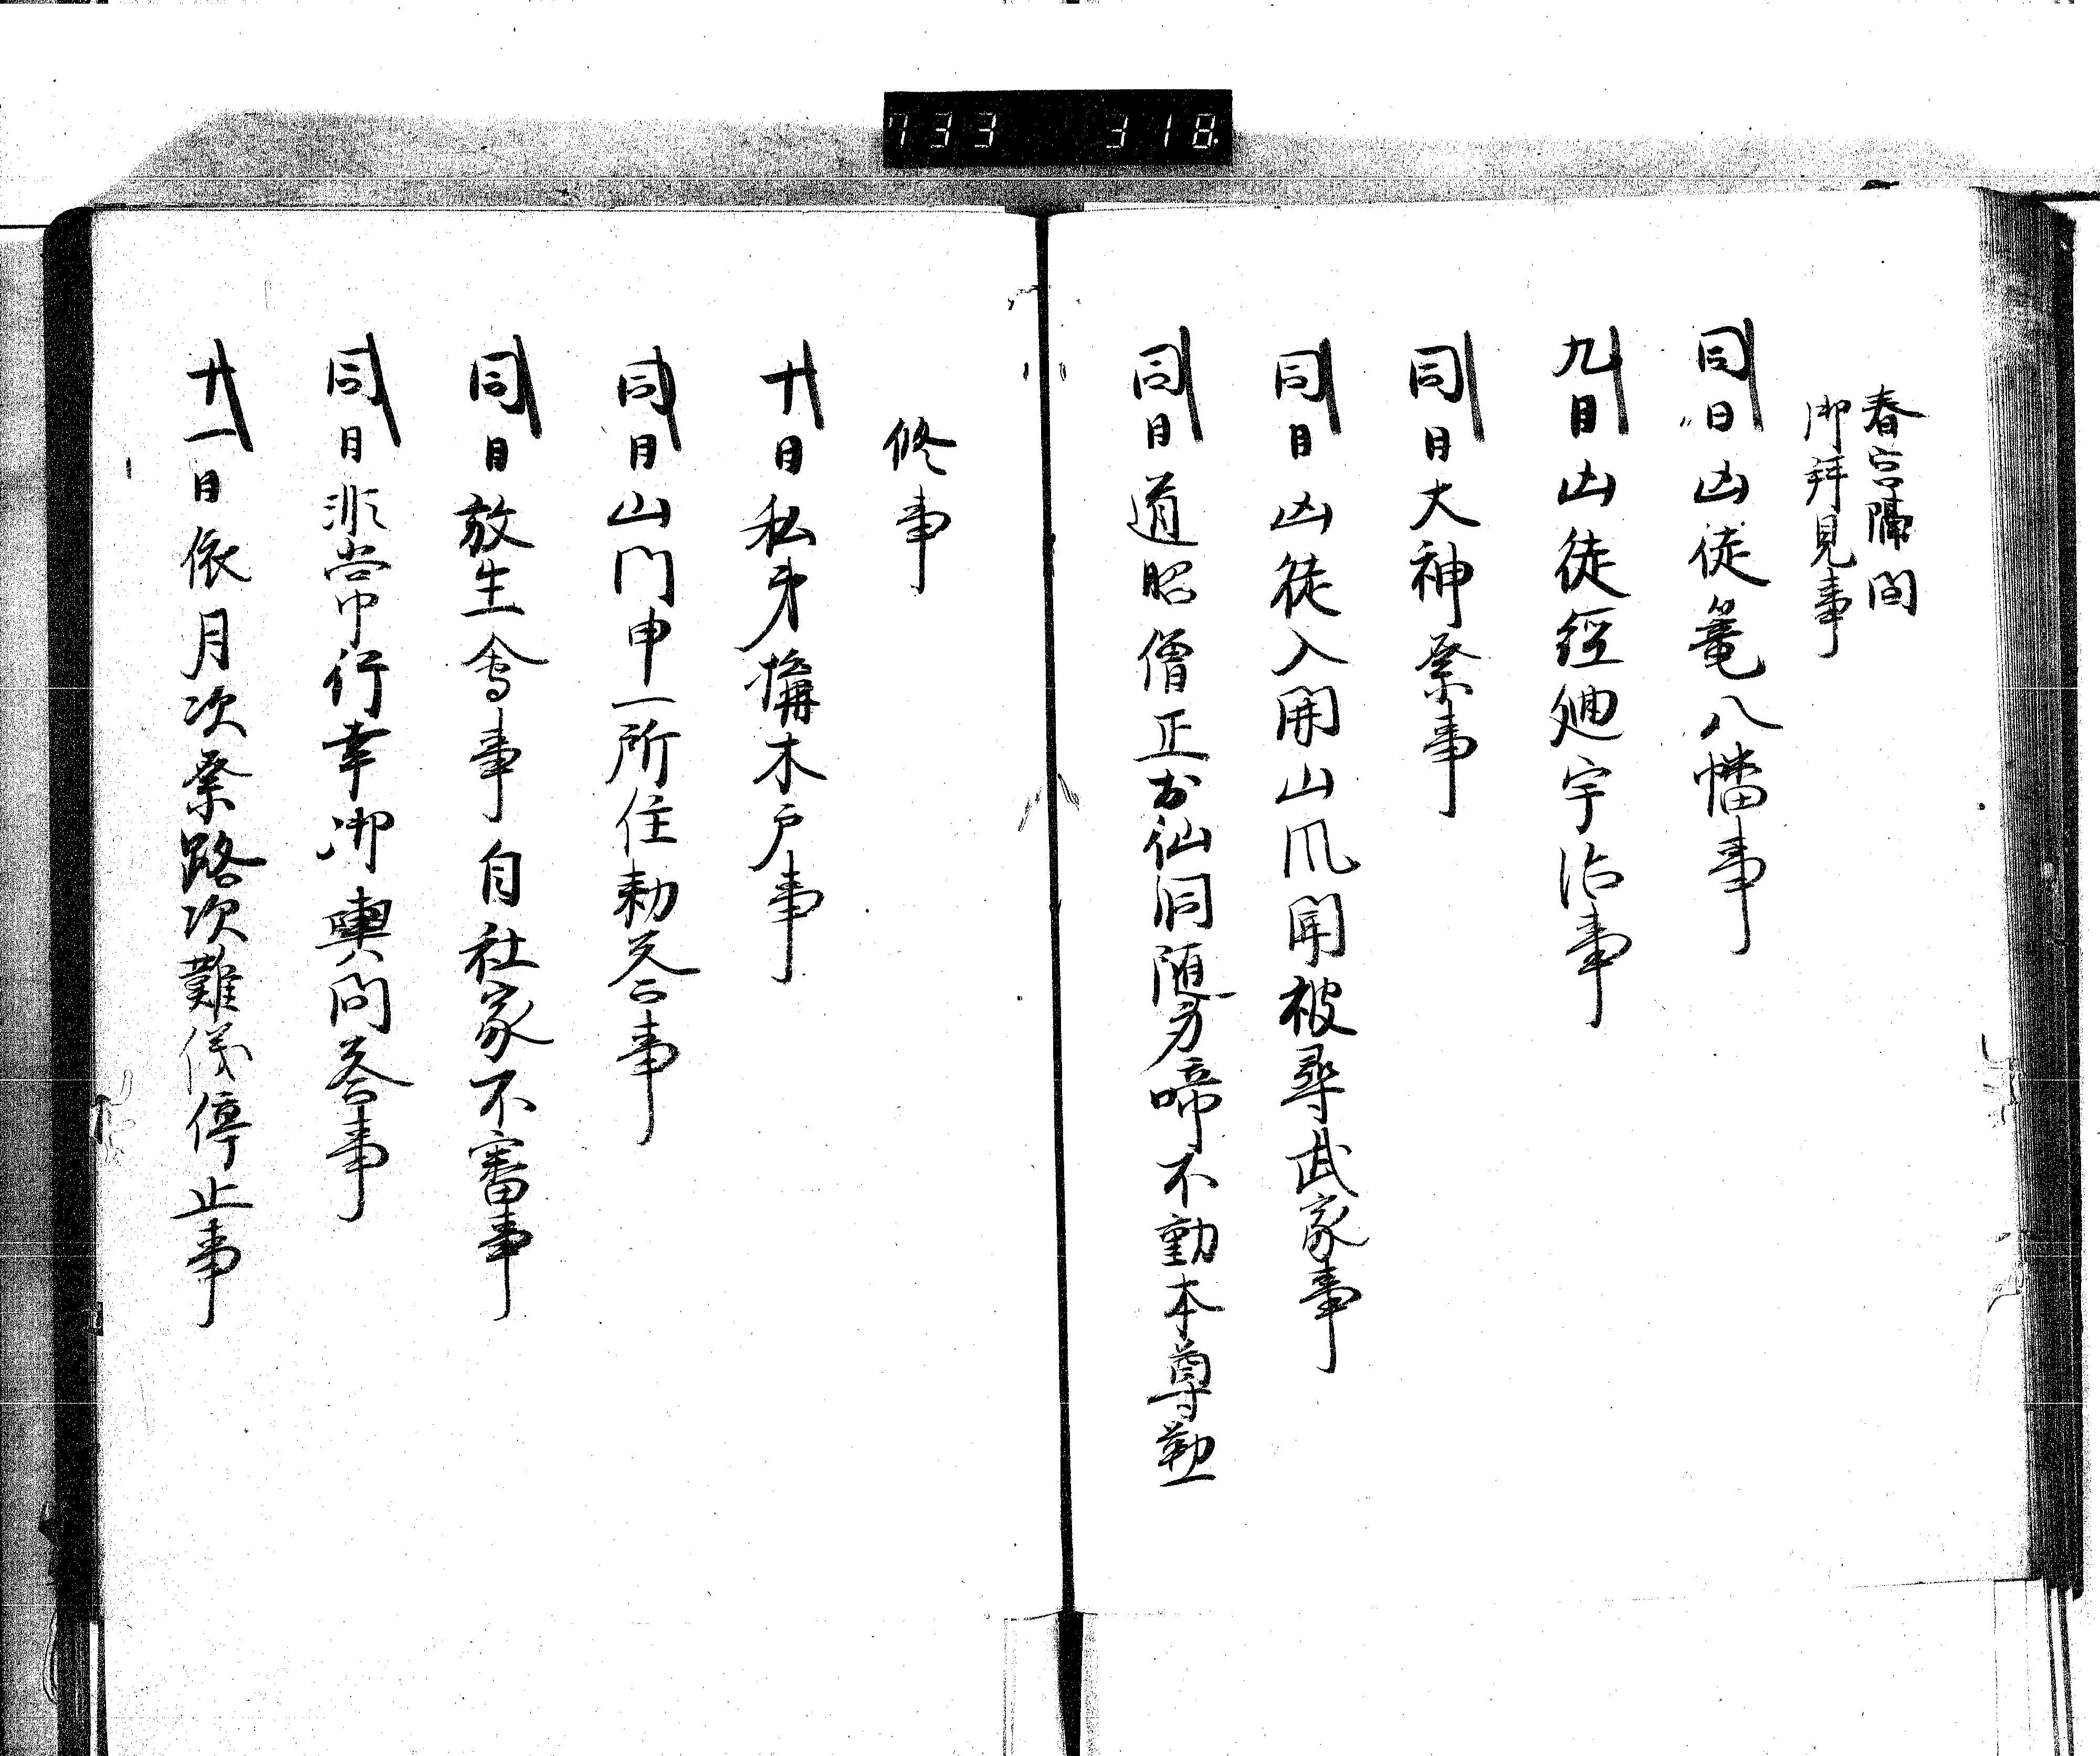 733 318
春宮隔間
御拜見事
同日凶徒篭八幡事
九日凶徒經廻宇治事
同日大神祭事
同日凶徒入開山爪聞被尋武家事
同日道昭僧正於仙洞随身啼不動本尊勤
修事
十日私第構木戸事
同日山門申一所住勅答事
同日放生會事自社家不審事
同日非常中行幸御輿問答事
十一日依月次祭路次難儀停止事